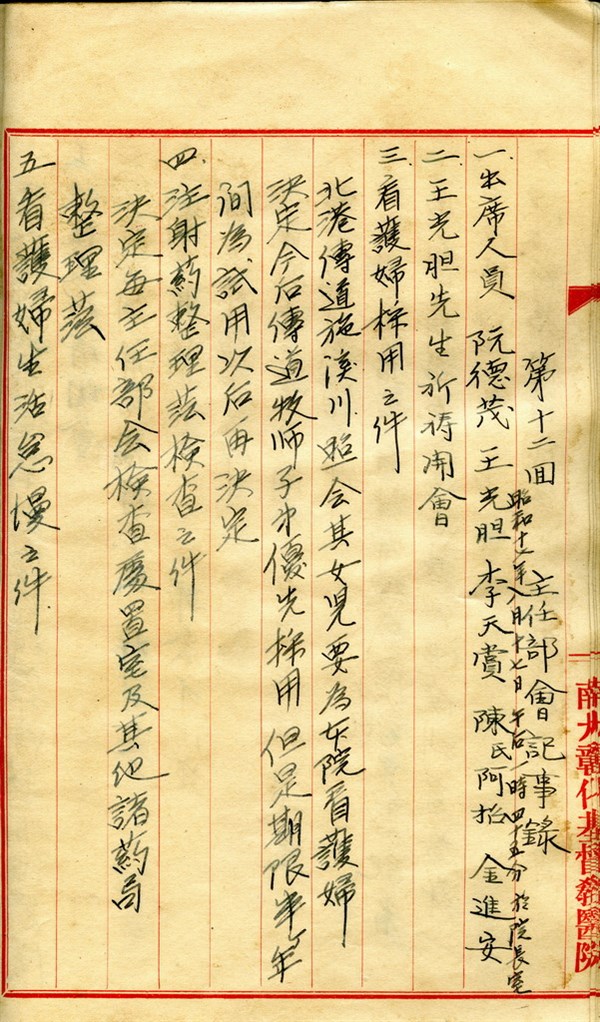 第十二回 主任部會記事錄
昭和十七年八月十七日 午后一時四十五分 於院長室
一.出席人員 阮德茂 王光胆 李天賞 陳氏阿招 金進安
二.王光胆先生祈祷開會
三.看護婦採用之件
北港傳道施溪川照会其女児要為本院看護婦
決定今后傳道牧师子弟優先採用 但是期限半ヶ年
间為試用次后再決定
四.注射葯整理並検査之件
決定每主任部会検査處置室及其他諸葯局
整理並
五看護婦生活怠慢之件
彰化基督教醫院